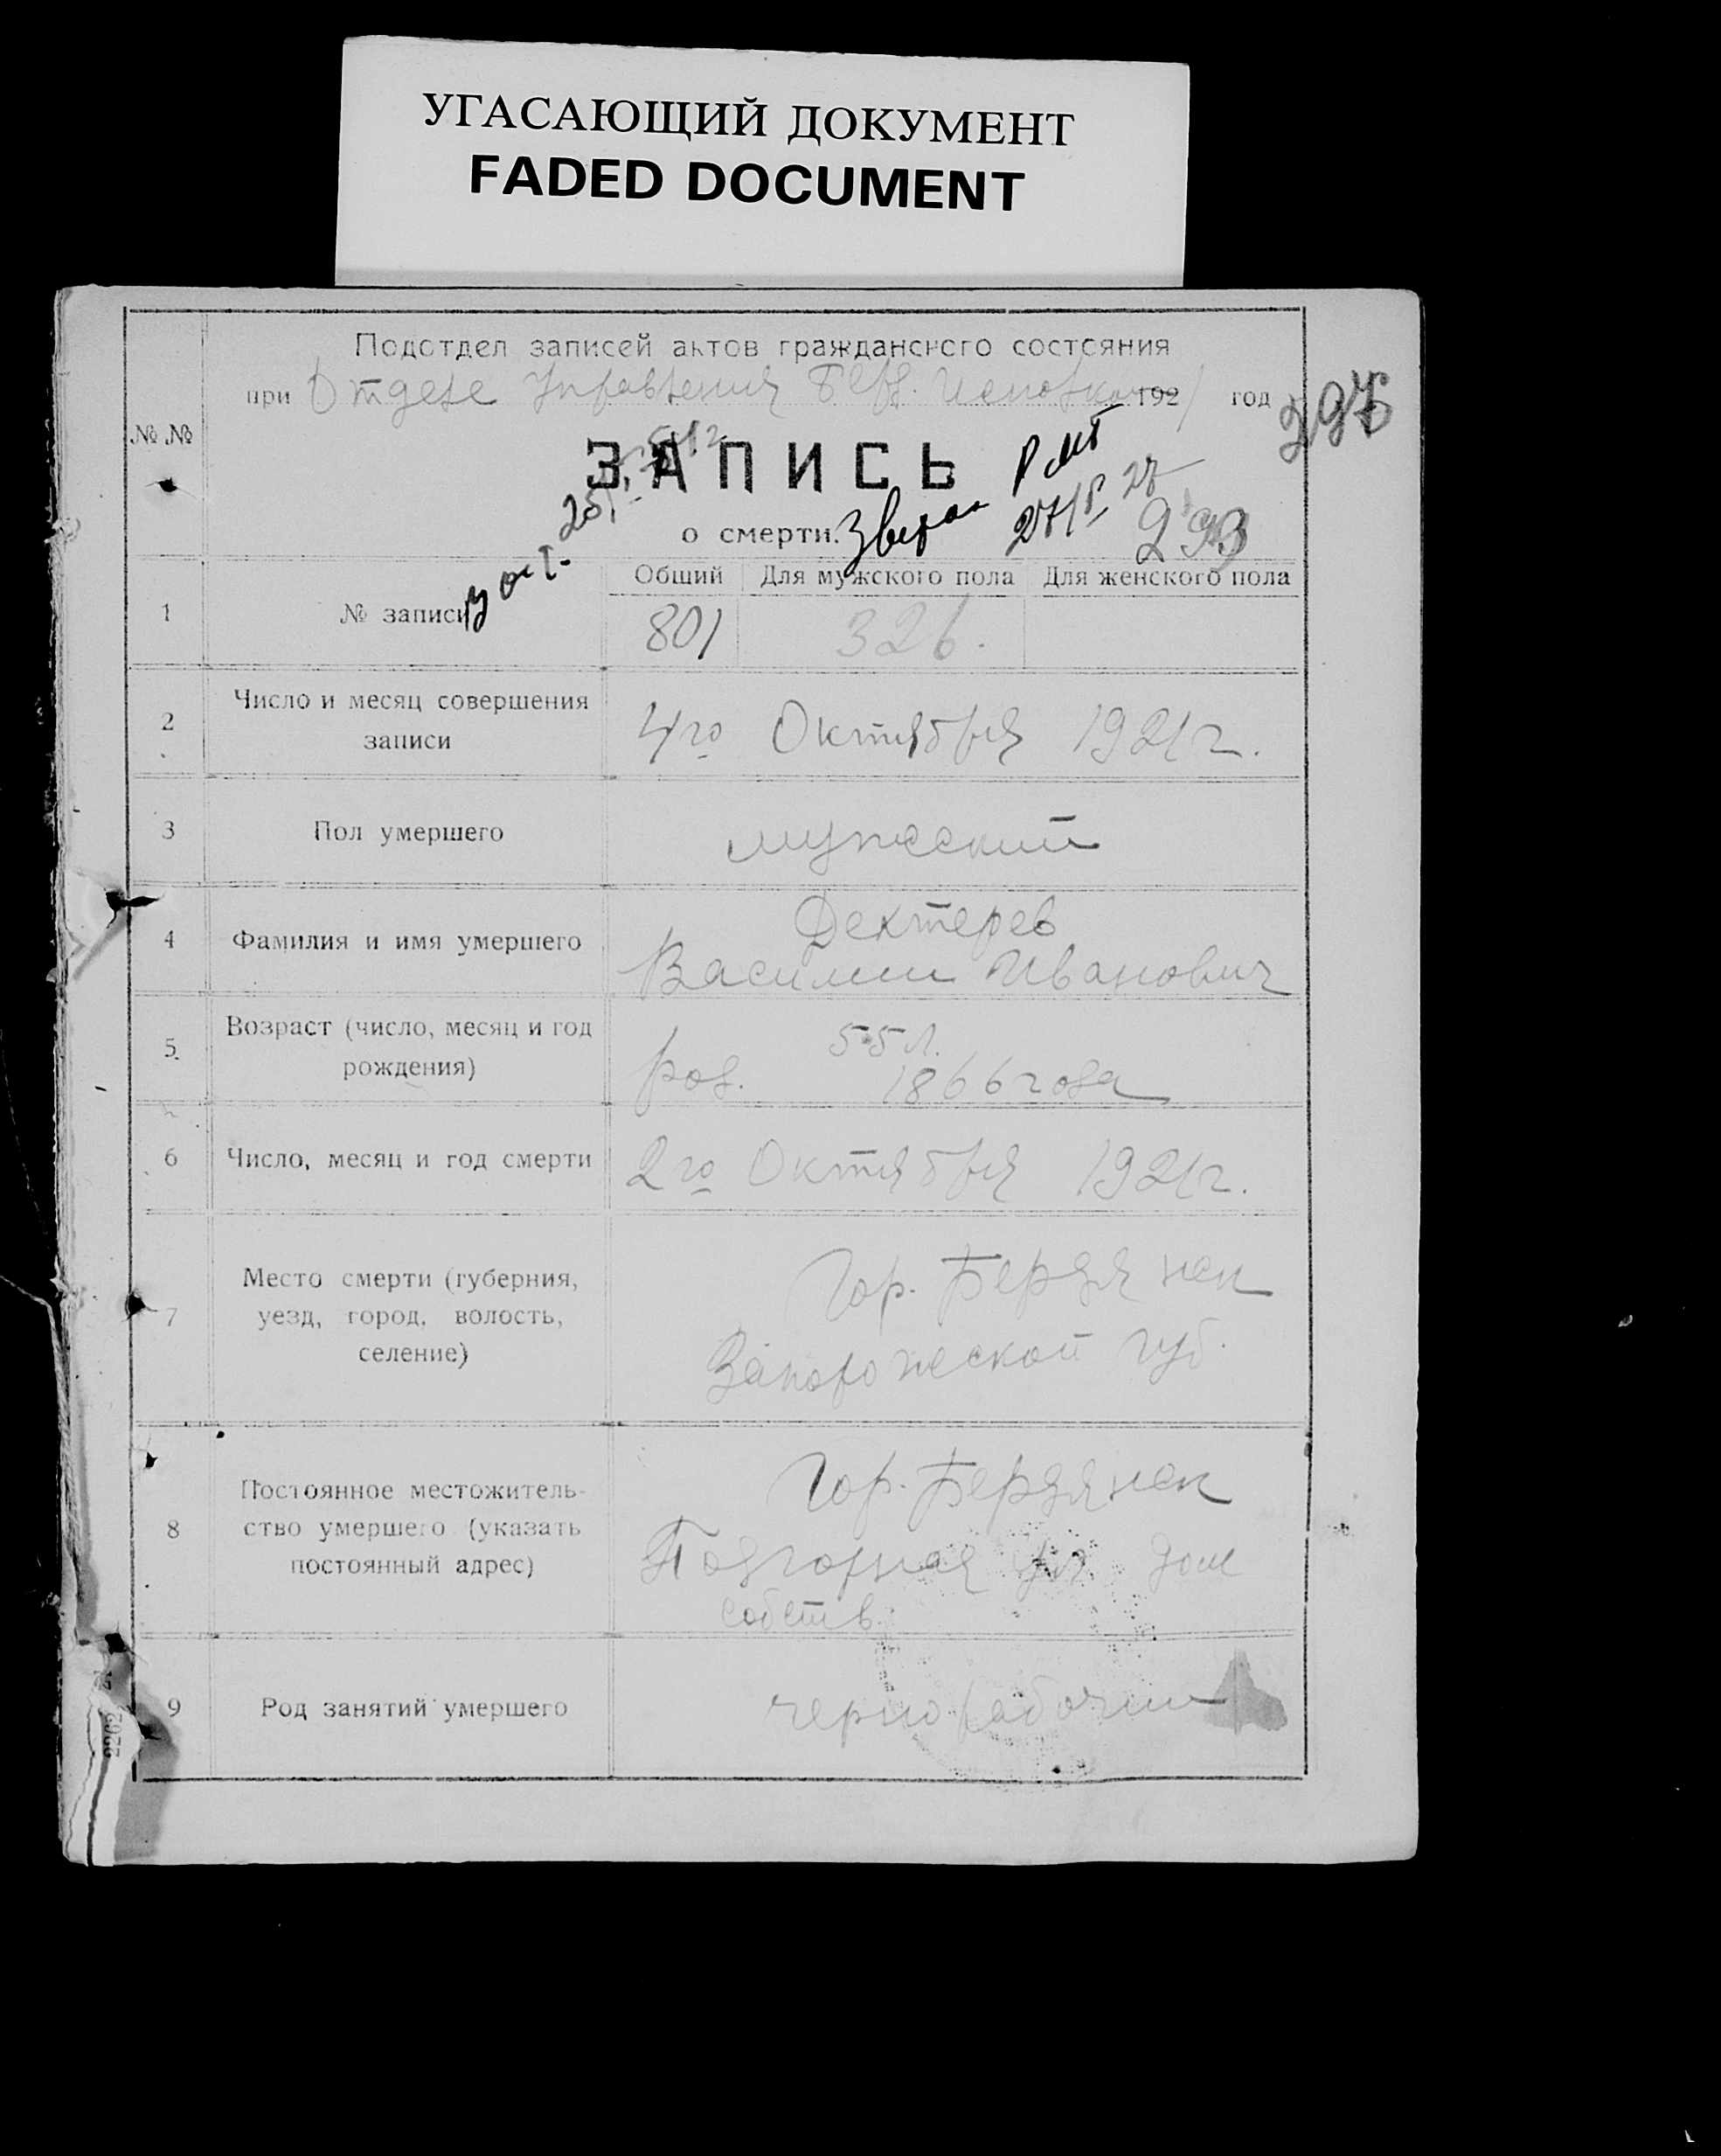 УГАСАЮЩИЙ ДОКУМЕНТ
FADED DOCUMENT
Подотдел записей актов гражданского состояния
при Отделе Управления Берд. Исполкома 1921 год
297
№ №
ЗАПИСЬ
о смерти.
293
Общий Для мужского пола Для женского пола
1 № записи 801 326.
2 Число и месяц совершения
записи
4го Октября 1921г.
3 Пол умершего мужеский
4 Фамилия и имя умершего
Дехтерев
Василий Иванович
5 Возраст (число, месяц и год
рождения)
55 л.
род. 1866 года
6 Число, месяц и год смерти 2го Октября 1921г.
7 Место смерти (губерния,
уезд, город, волость,
селение)
Гор. Бердянск
Запорожской губ.
8 Постоянное местожитель-
ство умершего (указать
постоянный адрес)
Гор. Бердянск
Подгорная ул. дом
собств.
9 Род занятий умершего чернорабочий
2262